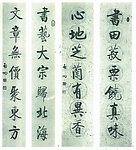 書田菽粟饒真味
心地芝蘭有異香
書藝大宗北海
文章無價聚東方